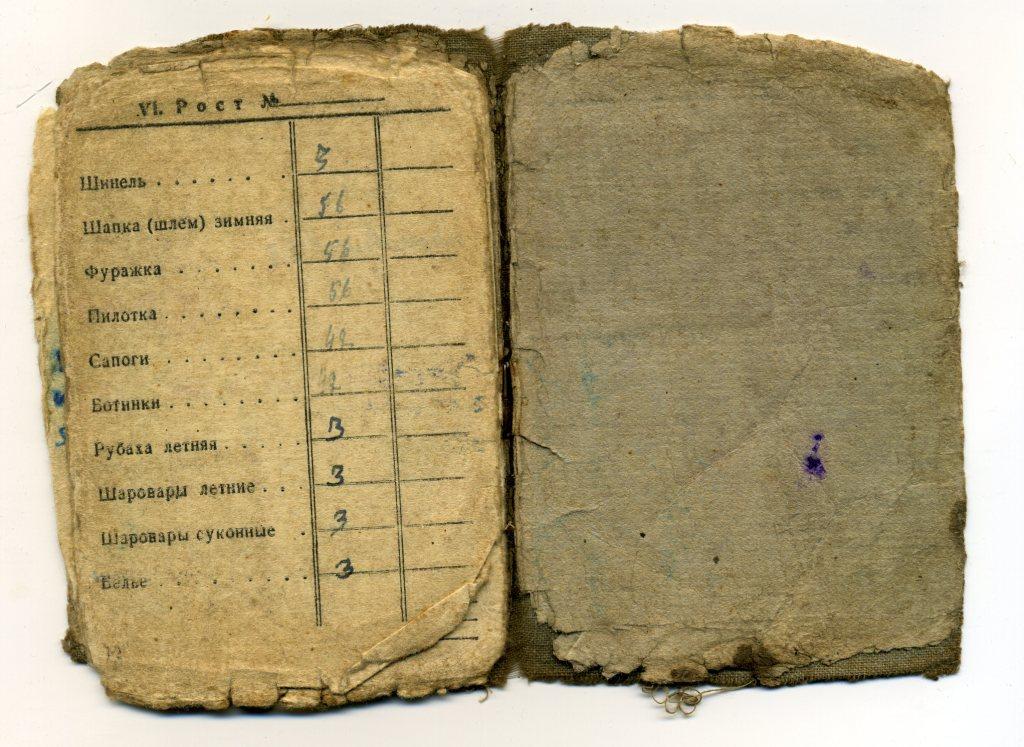 VI. Рост №
Шинель . . . . . . . 3
Шапка (шлем) зимняя . 56
Фуражка . . . . . . . . 56
Пилотка . . . . . . . . 56
Сапоги . . . . . . . . . 42
Ботинки . . . . . . . . 42
Рубаха летняя . . . . . 3
Шаровары летние . . . 3
Шаровары суконные . 3
Белье . . . . . . . . . . 3